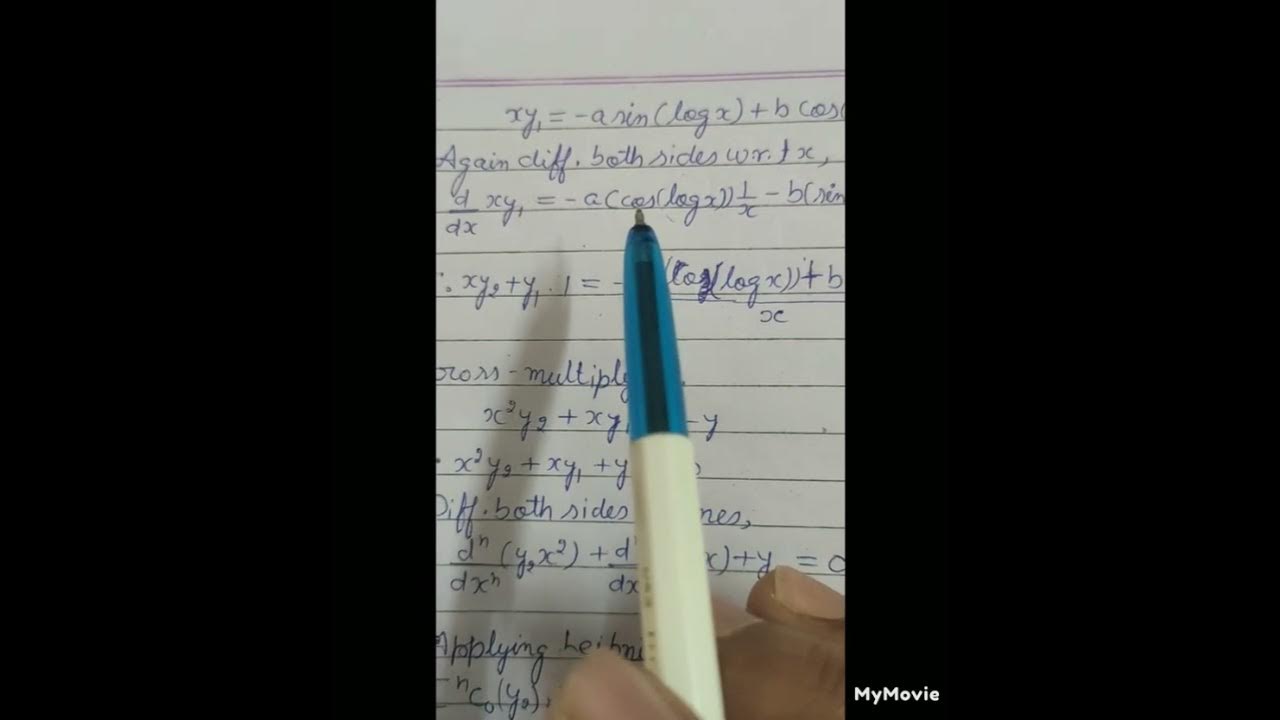 xy₁ = -a sin(log x) + b cos(
Again diff. both sides w.r.t x,
d/dx xy₁ = -a(cos(log x)) 1/x - b(sin
∴ xy₂ + y₁ . 1 = - (cos(log x)) + b
x
cross-multiply
x²y₂ + xy₁ - y
x²y₂ + xy₁ + y
Diff. both sides
dⁿ/dxⁿ (y₂x²) + dⁿ/dx x) + y = 0
Applying Leibni
ⁿC₀(y₂)
MyMovie